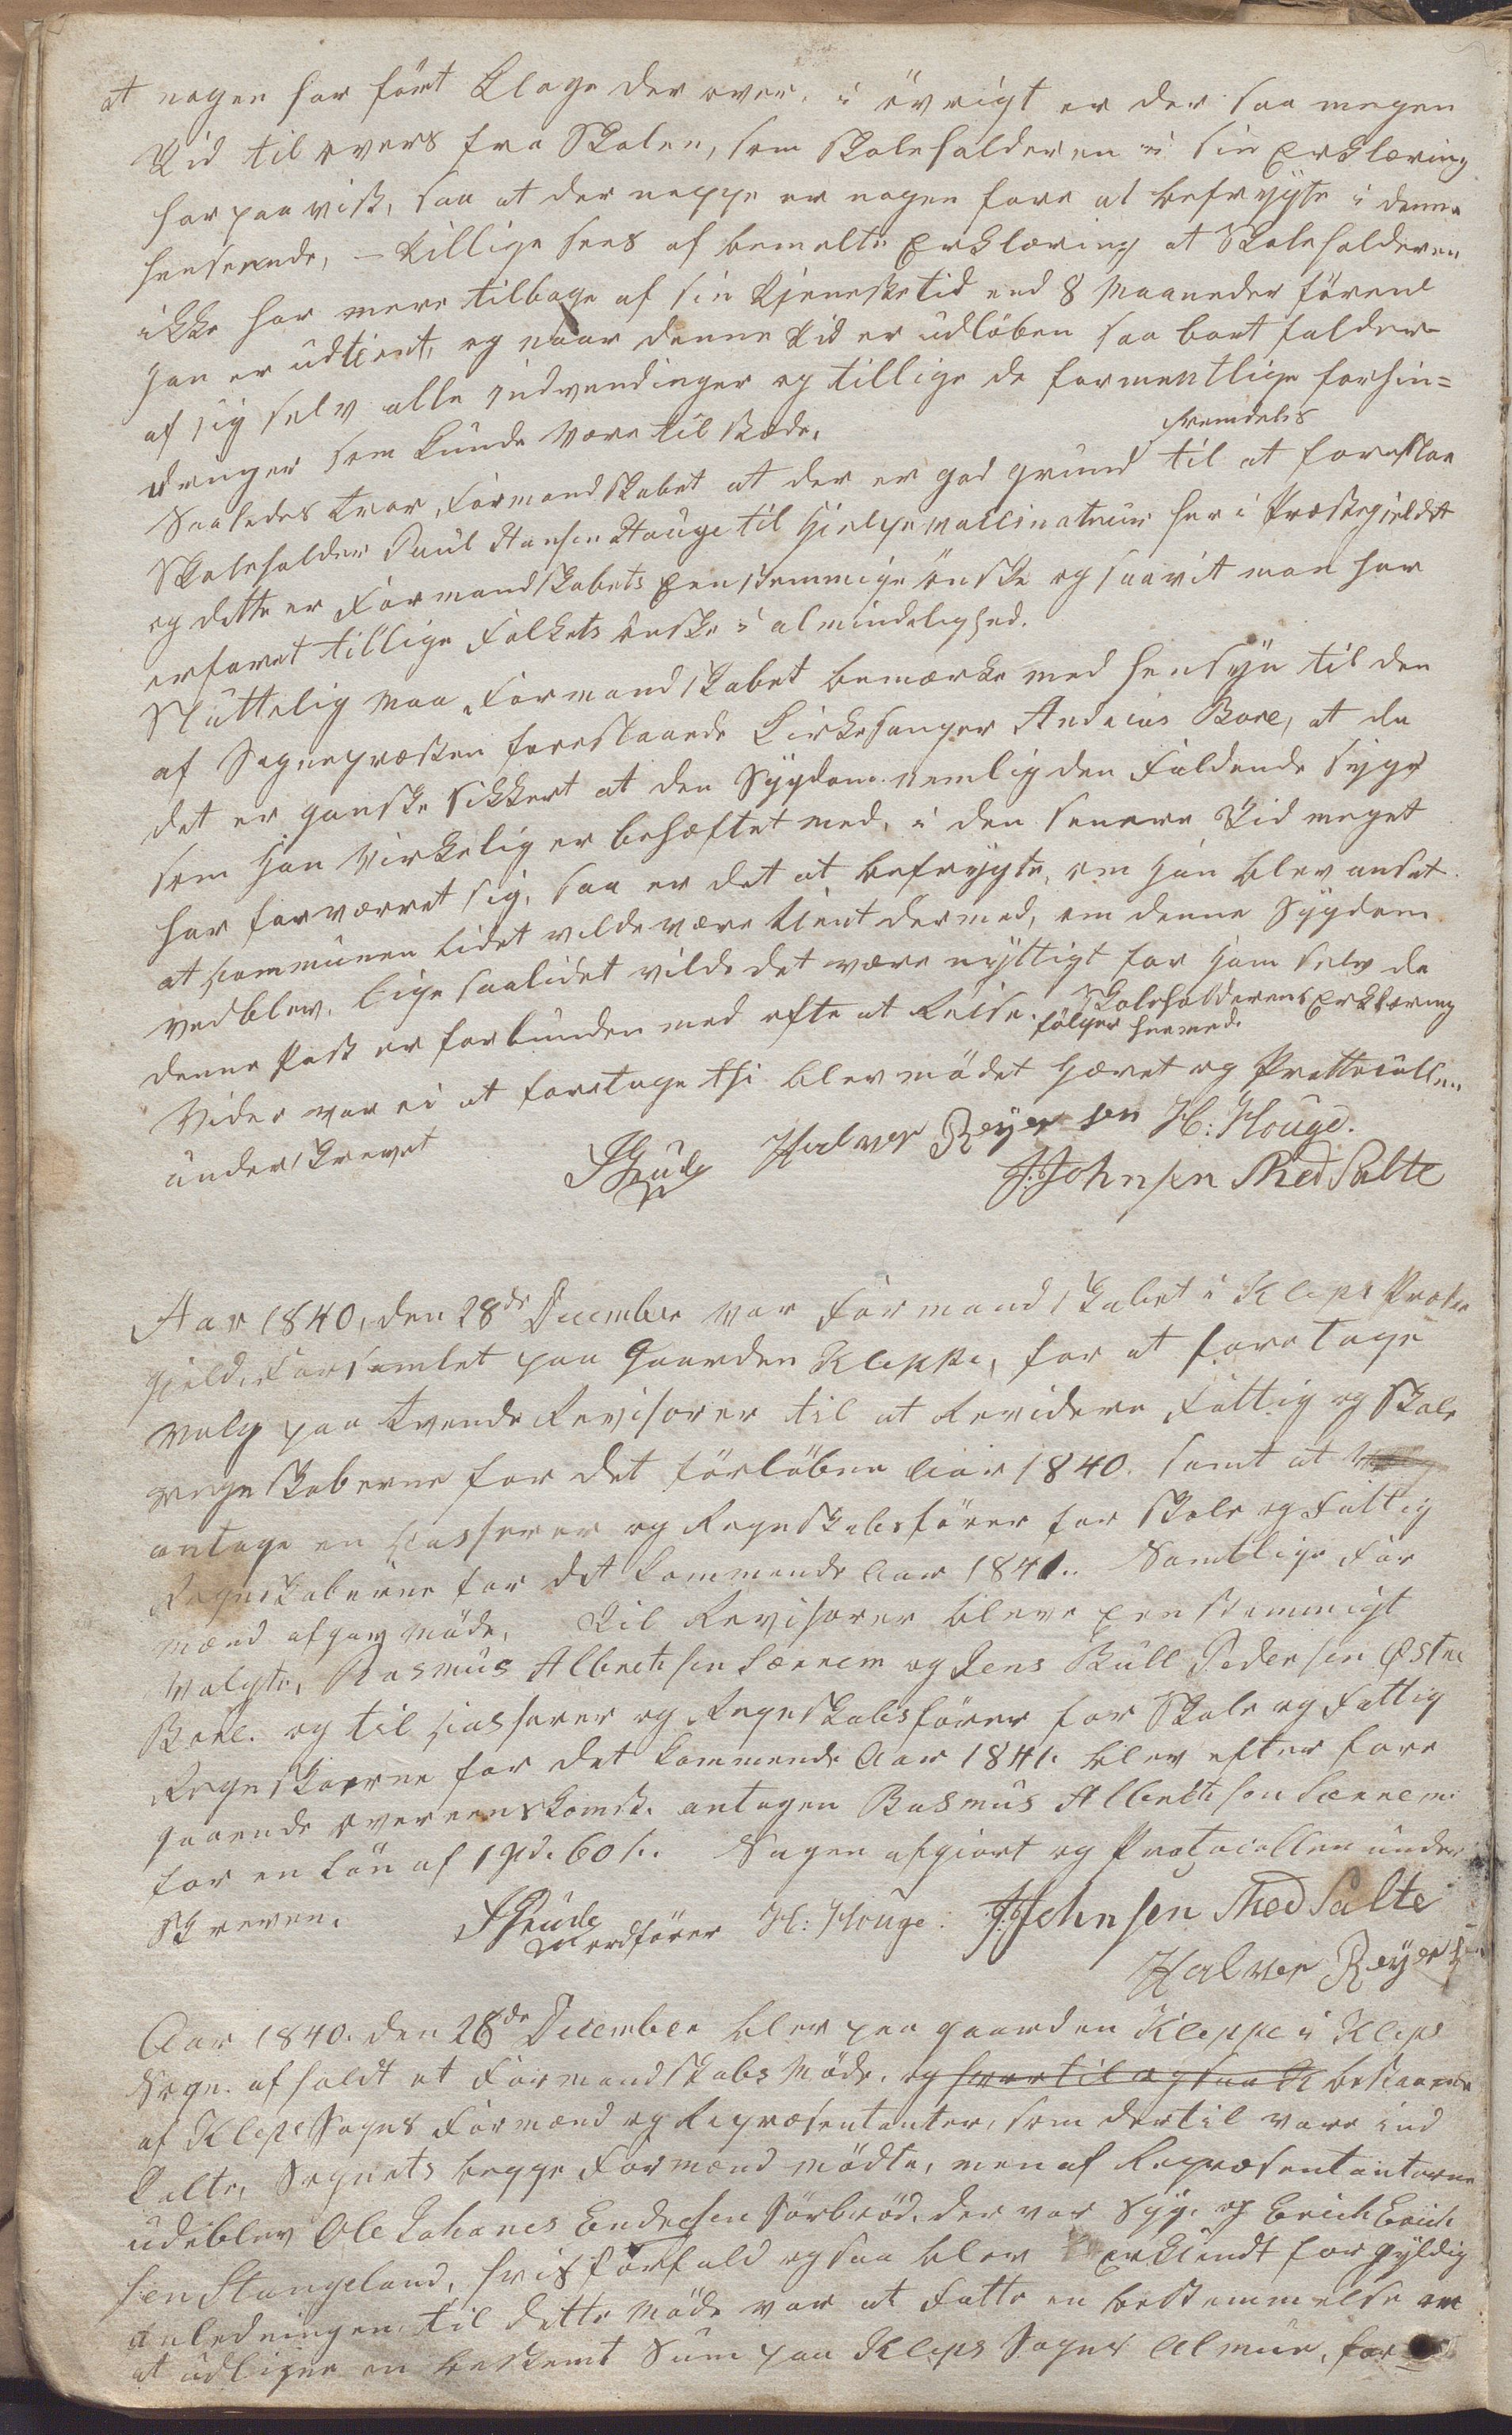 at nogen har ført Klage der over, i övrigt er der saa megen
Tid til overs fra Skolen, som Skoleholderen i sin Erklæring
har paavist, saa at der neppe er nogen fare at befrygte i denne
henseende, – Tillige sees af bemelte Erklæring at Skoleholderen
ikke har mere tilbage af sin Tjenestetid end 8 Maaneder förend
han er udtient, og naar denne Tid er udlöben saa bort falder
af sig selv alle indvendinger og tillige de formentlige forhin=
dringer som kunde være til stæde.
Saaledes troer Formandskabet at der er god grund fremdeles til at foreslaae
Skoleholder Poul Hansen Hauge til Hjelpe vaccinateur her i Præstegieldet
og dette er Formandskabets Eenstemmige önske og saavit man har
erfaret tillige Folkets önske i almindelighed.
Sluttelig maa Formandskabet bemærke med hensyn til den
af Sognepræsten foreslaaede Kirkesanger Andreas Bore, at da
det er ganske sikkert at den Sygdom nemlig den Faldende syge
som han virkelig er behæftet med, i den senere Tid meget
har forværret sig, saa er det at befrygte, om han blev ansat
at Communen lidet vilde være tient dermed, om denne Sygdom
vedblev, lige saalidet vilde det være nyttigt for ham selv da
denne Post er forbunden med ofte at Reise. Skoleholderens Erklæring
følger hermed.
Vider var ei at foretage thi blev mödet hævet og Prottocullen
underskrevet
Halver Reyersen H: Houge.
J. Johnsen Thed Salte
Aar 1840, den 28de December var Formandskabet i Kleps Præste
gield, Forsamlet paa Gaarden Kleppe, for at foretage
valg paa tvende Revisorer til at Revidere Fattig og Skole
regnskaberne for det forløbne Aar 1840. samt at
antage en Casserer og Regnskabsfører for Skole og Fattig
Regnskaberne for det kommende Aar 1841. Samtlige For
mænd afgav möde, Til Revisorer bleve Eenstemmigt
valgte, Rasmus Albretsen Særrem og Jens Bull Pedersen Østre
Bore. og til Casserer og Regnskabsfører for Skole og Fattig
Regnskaerne for det kommende Aar 1841. blev efter fore
gaaende overeenskomst. antagen Rasmus Albretsen Særrem
for en Lön af 1 Spd. 60 s. Sagen afgiort og Protocollen under
skreven.
Ordfører H: Houge. J. Johnsen Thed Salte
Halver Reyers
Aar 1840. den 28de December blev paa gaarden Kleppe i Kleps
Sogn. afholdt et Formandskabs Möde. og hvortil ogsaa bestaaende
af Kleps Sogns Formænd og Repræsentanter, som dertil vare ind
kalte, Sognets begge Formænd mödte, men af Repræsentanterne
udeblev Ole Johanes Endresen Sörbröd. der var Syg. og Erich Erich
sen Stangeland, hvis forfald ogsaa blev erkiendt for gyldig
Anledningen til dette Möde var at Fatte en bestemmelse om
at udligne en bestemt Sum paa Kleps Sogns Almue, for